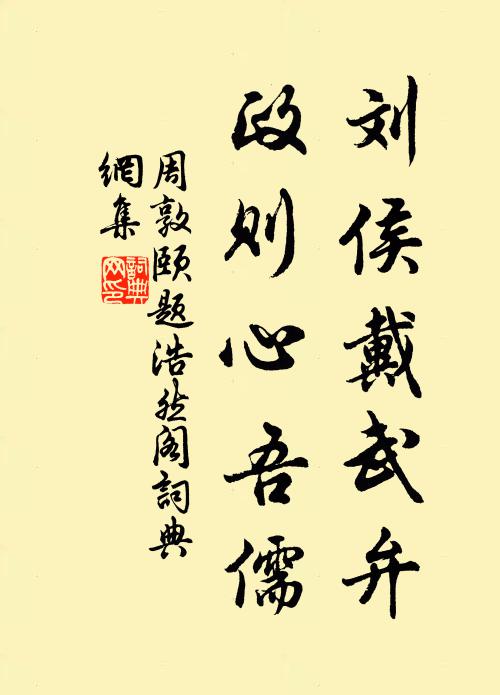 刘侯戴武弁
政则心吾儒
周敦颐题浩然阁詞典
網集
詞典网印